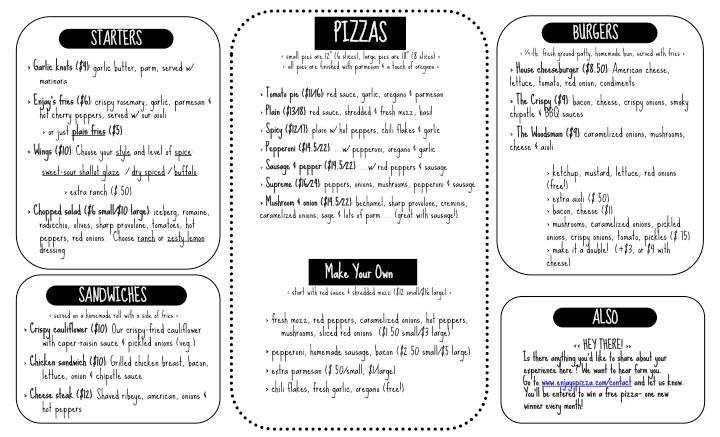 STARTERS
> Garlic knots ($4): garlic butter, parm, served w/
marinara
> Enjay's fries ($6): crispy rosemary, garlic, parmesan &
hot cherry peppers, served w/ our aioli
> or just plain fries ($5)
> Wings ($10): Choose your style and level of spice:
sweet-sour shallot glaze / dry spiced / buffalo
> extra ranch ($.50)
> Chopped salad ($6 small/$10 large): iceberg, romaine,
radicchio, olives, sharp provolone, tomatoes, hot
peppers, red onions. Choose ranch or zesty lemon
dressing
SANDWICHES
< served on a homemade roll with a side of fries >
> Crispy cauliflower ($10): Our crispy-fried cauliflower
with caper-raisin sauce & pickled onions (veg.)
> Chicken sandwich ($10): Grilled chicken breast, bacon,
lettuce, onion & chipotle sauce
> Cheese steak ($12): Shaved ribeye, american, onions &
hot peppers
PIZZAS
< small pies are 12" (6 slices), large pies are 18" (8 slices) >
< all pies are finished with parmesan & a touch of oregano >
> Tomato pie ($11/16): red sauce, garlic, oregano & parmesan
> Plain ($13/18): red sauce, shredded & fresh mozz, basil
> Spicy ($12/17): plain w/ hot peppers, chili flakes & garlic
> Pepperoni ($14.5/22): ...w/ pepperoni, oregano & garlic
> Sausage & pepper ($14.5/22): ...w/ red peppers & sausage
> Supreme ($16/24): peppers, onions, mushrooms, pepperoni & sausage
> Mushroom & onion ($14.5/22): bechamel, sharp provolone, creminis,
caramelized onions, sage & lots of parm.... (great with sausage!)
Make Your Own
< start with red sauce & shredded mozz ($12 small/$16 large) >
> fresh mozz, red peppers, caramelized onions, hot peppers,
mushrooms, sliced red onions ($1.50 small/$3 large)
> pepperoni, homemade sausage, bacon ($2.50 small/$5 large)
> extra parmesan ($.50/small, $1/large)
> chili flakes, fresh garlic, oregano (free!)
BURGERS
< ⅓-lb. fresh ground patty, homemade bun, served with fries >
> House cheeseburger ($8.50): American cheese,
lettuce, tomato, red onion, condiments
> The Crispy ($9): bacon, cheese, crispy onions, smoky
chipotle & BBQ sauces
> The Woodsman ($9): caramelized onions, mushrooms,
cheese & aioli
> ketchup, mustard, lettuce, red onions
(free!)
> extra aioli ($.50)
> bacon, cheese ($1)
> mushrooms, caramelized onions, pickled
onions, crispy onions, tomato, pickles ($.75)
> make it a double! (+$3, or $4 with
cheese)
ALSO
<< HEY THERE! >>
Is there anything you'd like to share about your
experience here? We want to hear form you.
Go to www.enjayspizza.com/contact and let us know.
You'll be entered to win a free pizza- one new
winner every month!